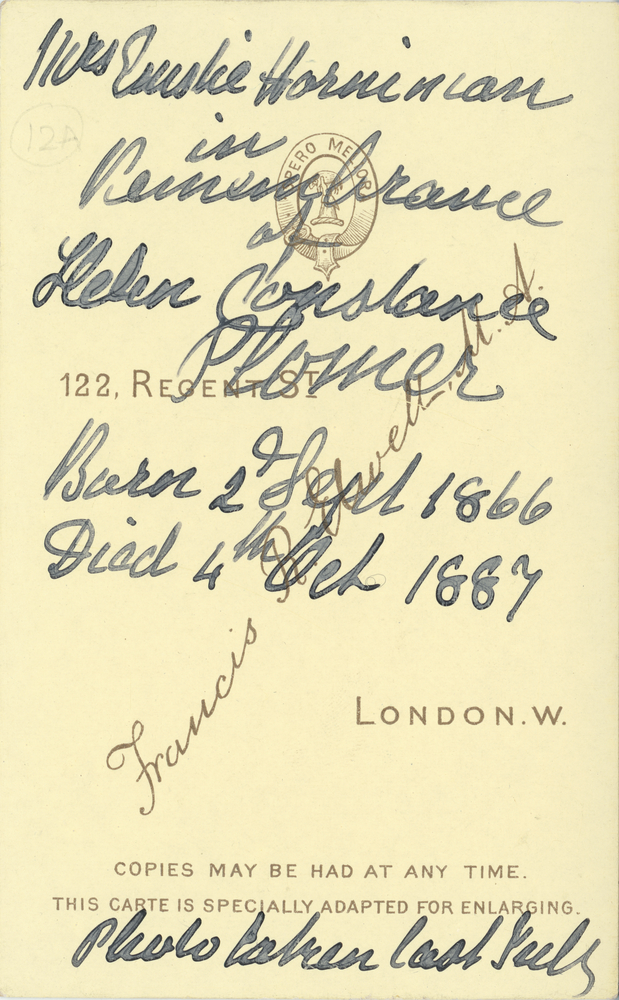 Mrs Emslie Horniman
12A
in
SPERO MELIORA
Remembrance
of
Helen Constance
Plomer
122, REGENT ST
Born 2d Sept 1866
Died 4th Oct 1887
Francis R. Elwell, M.A.
LONDON.W.
COPIES MAY BE HAD AT ANY TIME.
THIS CARTE IS SPECIALLY ADAPTED FOR ENLARGING.
Photo taken last July